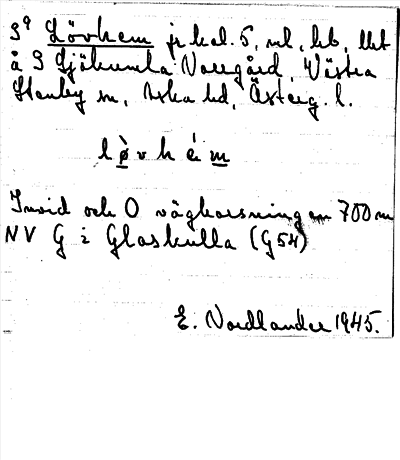 S⁹ Lövhem jr kal. 5, ml, hb, tht
å S Gjäkumla Norrgård, Västra
Stenby sn, Aska hd, Österg. l.
l ò v h é m
Invid och O vägkorsning en 700 m
NV G i Glaskulla (G54)
E. Nordlander 1945.